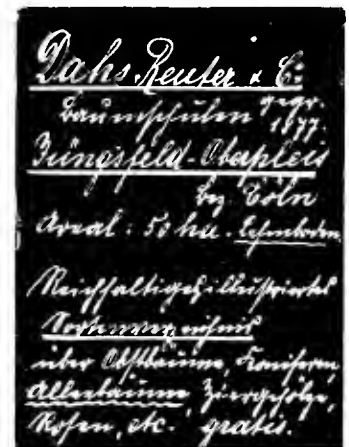 Dahs, Reuter & Co
Baumschulen gegr. 1877.
Jüngsfeld-Oberpleis
bez. Cöln
Areal: 50 ha. Lehmboden
Reichhaltiges illustriertes
Sortenverzeichnis
über Obstbäume, Koniferen,
Alleebäume, Ziergehölze,
Rosen, etc. gratis.